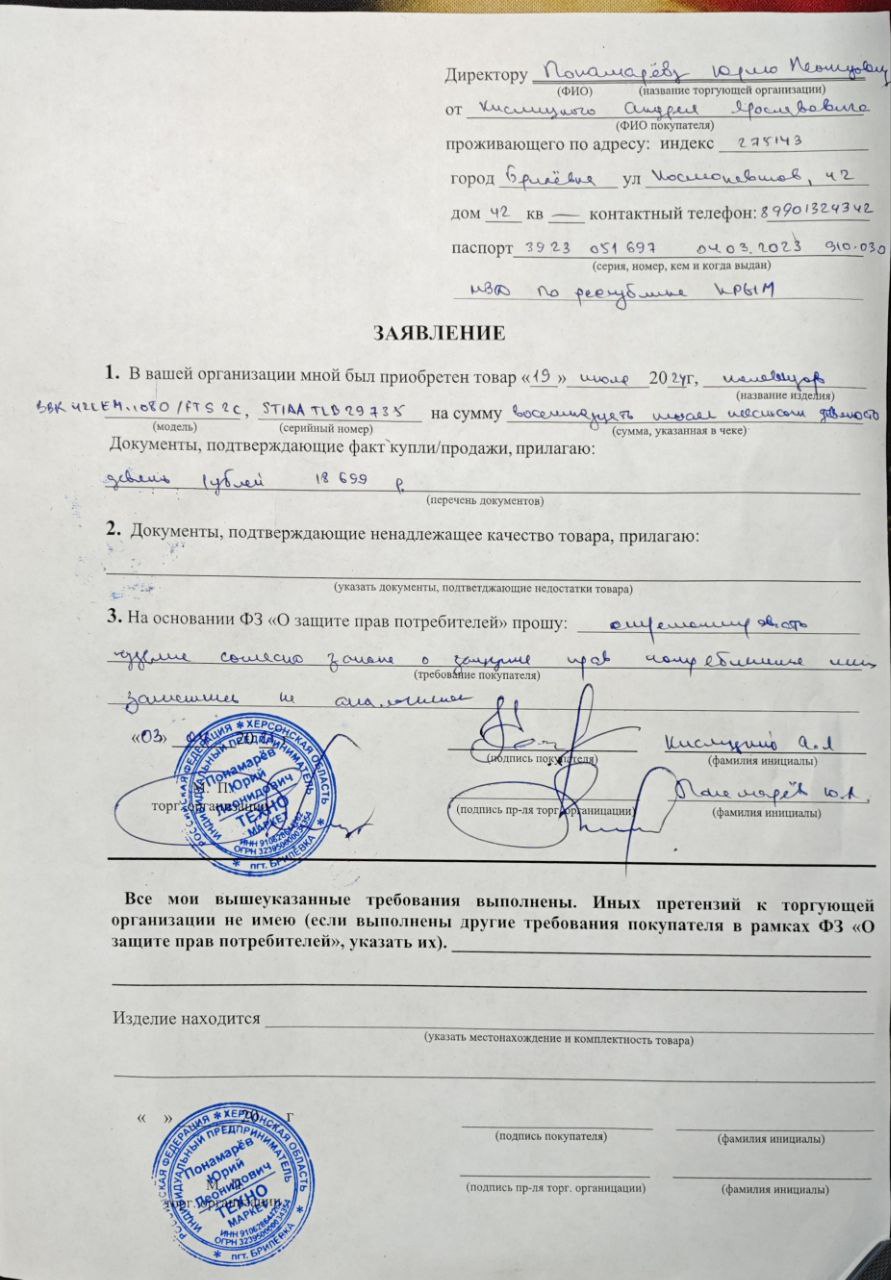 Директору Понамарёву Юрию Леонидович
(ФИО) (название торгующей организации)
от Кислицкого Андрея Ярославовича
(ФИО покупателя)
проживающего по адресу: индекс 275143
город Брилёвка ул Космонавтов, 42
дом 42 кв — контактный телефон: 89901324342
паспорт 3923 051 697 04.03.2023 910-030
(серия, номер, кем и когда выдан)
МВД по республике КРЫМ
ЗАЯВЛЕНИЕ
1. В вашей организации мной был приобретен товар «19» июля 2024г,
(название изделия)
BBK 42LEM-1080/FTS2C, на сумму восемнадцать тысяч шестьсот девяносто
(модель) (серийный номер) (сумма, указанная в чеке)
Документы, подтверждающие факт купли/продажи, прилагаю:
девять рублей 18 699 р.
(перечень документов)
2. Документы, подтверждающие ненадлежащее качество товара, прилагаю:
(указать документы, подтветджающие недостатки товара)
3. На основании ФЗ «О защите прав потребителей» прошу: отремонтировать
изделие согласно закона о защите прав потребителя или
(требование покупателя)
заменить на аналогичное
«03» 20
(подпись покупателя) (фамилия инициалы)
Кислицкий А.Я
М. П.
торг. организации
(подпись пр-ля торг. организации) (фамилия инициалы)
Понамарёв Ю.Л.
РОССИЙСКАЯ ФЕДЕРАЦИЯ * ХЕРСОНСКАЯ ОБЛАСТЬ
ИНДИВИДУАЛЬНЫЙ ПРЕДПРИНИМАТЕЛЬ
Понамарёв
Юрий
Леонидович
ТЕХНО
МАРКЕТ
пгт. БРИЛЁВКА
Все мои вышеуказанные требования выполнены. Иных претензий к торгующей
организации не имею (если выполнены другие требования покупателя в рамках ФЗ «О
защите прав потребителей», указать их).
Изделие находится
(указать местонахождение и комплектность товара)
« » 20 г
(подпись покупателя) (фамилия инициалы)
М. П.
торг. организации
(подпись пр-ля торг. организации) (фамилия инициалы)
РОССИЙСКАЯ ФЕДЕРАЦИЯ * ХЕРСОНСКАЯ ОБЛАСТЬ
ИНДИВИДУАЛЬНЫЙ ПРЕДПРИНИМАТЕЛЬ
Понамарёв
Юрий
Леонидович
ТЕХНО
МАРКЕТ
пгт. БРИЛЁВКА